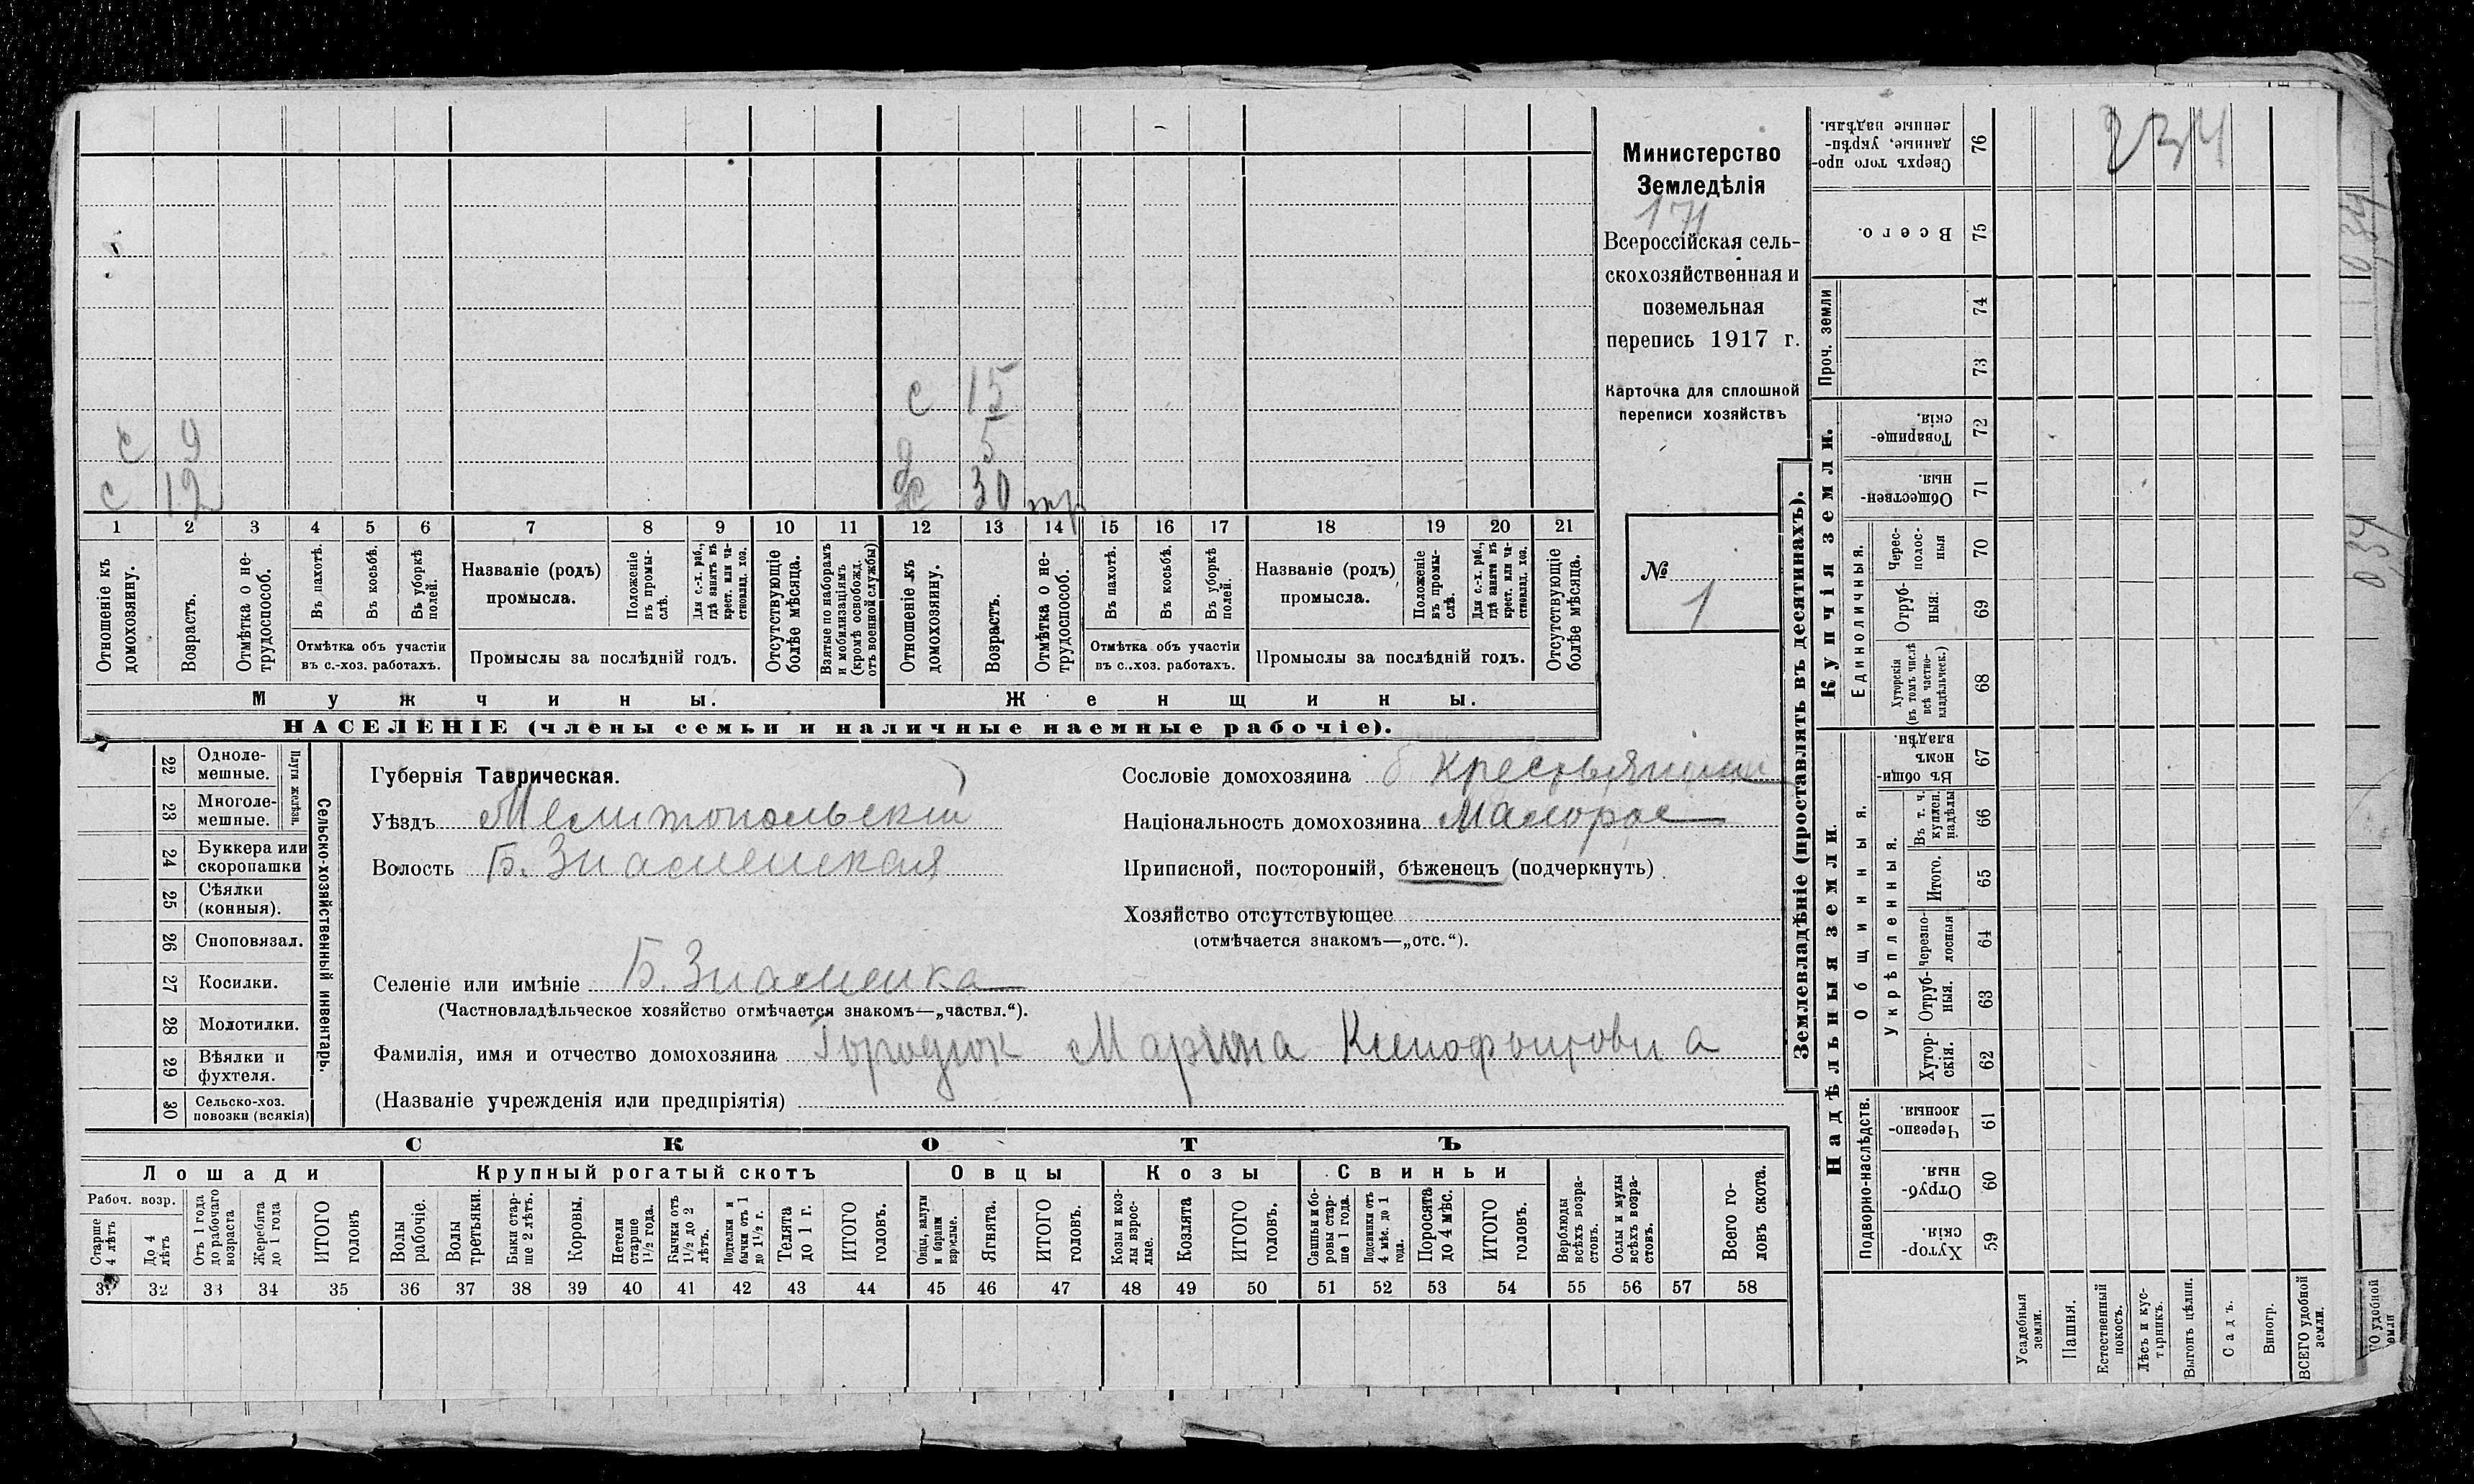 Министерство
Земледѣлія
171
Всероссійская сель-
скохозяйственная и
поземельная
перепись 1917 г.
Карточка для сплошной
переписи хозяйствъ
№ 1
с 15
с 9 д 5
с 12 30
1 2 3 4 5 6 7 8 9 10 11 12 13 14 15 16 17 18 19 20 21
Отношеніе къ домохозяину.
Возрастъ.
Отмѣтка о не-трудоспособ.
Въ пахотѣ.
Въ косьбѣ.
Въ уборкѣ полей.
Отмѣтка объ участіи
въ с.-хоз. работахъ.
Названіе (родъ)
промысла.
Положеніе въ промы-слѣ.
Для с.-х. раб., гдѣ занятъ въ крест. или ча-стновлад. хоз.
Промыслы за послѣдній годъ.
Отсутствующіе болѣе мѣсяца.
Взятые по наборамъ и мобилизаціямъ (кромѣ освобожд. отъ военной службы)
Отношеніе къ домохозяину.
Возрастъ.
Отмѣтка о не-трудоспособ.
Въ пахотѣ.
Въ косьбѣ.
Въ уборкѣ полей.
Отмѣтка объ участіи
въ с..хоз. работахъ.
Названіе (родъ)
промысла.
Положеніе въ промы-слѣ.
Для с.-х. раб., гдѣ занята въ крест. или ча-стновлад. хоз.
Промыслы за послѣдній годъ.
Отсутствующіе болѣе мѣсяца.
Мужчины. Женщины.
НАСЕЛЕНІЕ (члены семьи и наличные наемные рабочіе).
22 Одноле-мешные.
23 Многоле-мешные.
Плуги желѣзн.
24 Буккера или скоропашки
25 Сѣялки (конныя).
26 Сноповязал.
27 Косилки.
28 Молотилки.
29 Вѣялки и фухтеля.
30 Сельско-хоз. повозки (всякія)
Сельско-хозяйственный инвентарь.
Губернія Таврическая.
Уѣздъ Мелитопольскій
Волость Б. Знаменская
Сословіе домохозяина крестьянин
Національность домохозяина Малорос
Приписной, посторонній, бѣженецъ (подчеркнуть)
Хозяйство отсутствующее
(отмѣчается знакомъ—„отс.“).
Селеніе или имѣніе Б. Знаменка
(Частновладѣльческое хозяйство отмѣчается знакомъ—„частвл.“).
Фамилія, имя и отчество домохозяина Городюк Марина Ксенофонтовна
(Названіе учрежденія или предпріятія)
СКОТЪ
Лошади Крупный рогатый скотъ Овцы Козы Свиньи
Рабоч. возр.
Старше 4 лѣтъ
До 4 лѣтъ
Отъ 1 года до рабочаго возраста
Жеребята до 1 года
ИТОГО головъ
Волы рабочіе.
Волы третьяки.
Быки стар-ше 2 лѣтъ.
Коровы.
Нетели старше 1½ года.
Бычки отъ 1½ до 2 лѣтъ.
Подтелки и бычки отъ 1 до 1½ г.
Телята до 1 г.
ИТОГО головъ.
Овцы, валухи и бараны взрослые.
Ягнята.
ИТОГО головъ.
Козы и коз-лы взрос-лые.
Козлята
ИТОГО головъ.
Свиньи и бо-ровы стар-ше 1 года.
Подсвинки отъ 4 мѣс. до 1 года.
Поросята до 4 мѣс.
ИТОГО головъ.
Верблюды всѣхъ возра-стовъ.
Ослы и мулы всѣхъ возра-стовъ.
Всего го-ловъ скота.
32 33 34 35 36 37 38 39 40 41 42 43 44 45 46 47 48 49 50 51 52 53 54 55 56 57 58
Землевладѣніе (проставлять въ десятинахъ).
234
Сверхъ того про-данные, укрѣп-ленные надѣлы. 76
Всего. 75
Проч. земли 74
73
Купчія земли.
Товарище-скія. 72
Обществен-ныя. 71
Единоличныя.
Черес-полос-ныя 70
Отруб-ныя. 69
Хуторскія (въ томъ числѣ всѣ частно-владѣльческ.) 68
Надѣльныя земли.
Общинныя.
Въ общи-номъ владѣн. 67
Укрѣпленныя.
Въ т. ч. куплен. надѣлы 66
Итого. 65
Черезпо-лосныя 64
Отруб-ныя. 63
Хутор-скія. 62
Подворно-наслѣдств.
Черезпо-лосныя. 61
Отруб-ныя 60
Хутор-скія. 59
Усадебныя земли.
Пашня.
Естественный покосъ.
Лѣсъ и кус-тарникъ.
Выгонъ цѣлин.
Садъ.
Виногр.
ВСЕГО удобной земли.
034
034